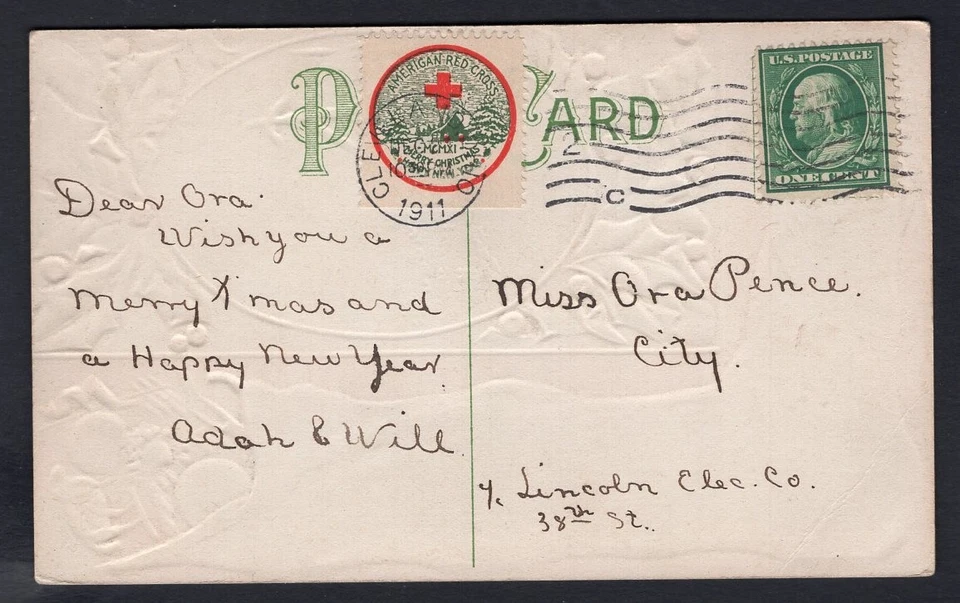 POST CARD
U.S. POSTAGE
ONE CENT
AMERICAN RED CROSS
MCMXI
MERRY CHRISTMAS
HAPPY NEW YEAR
CLE
1911
C
Dear Ora.
Wish you a
Merry X'mas and
a Happy New Year.
Adah & Will.
Miss Ora Pence.
City.
℅ Lincoln Elec. Co.
38th St.